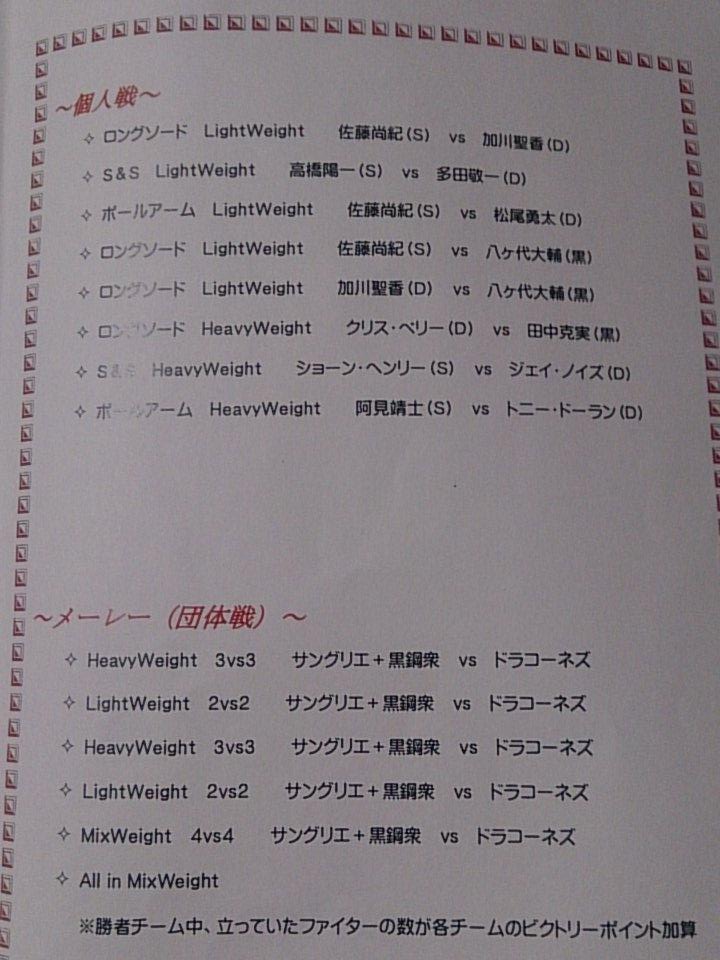 ～個人戦～
✧ ロングソード LightWeight 佐藤尚紀(S) vs 加川聖香(D)
✧ S&S LightWeight 高橋陽一(S) vs 多田敬一(D)
✧ ポールアーム LightWeight 佐藤尚紀(S) vs 松尾勇太(D)
✧ ロングソード LightWeight 佐藤尚紀(S) vs 八ヶ代大輔(黒)
✧ ロングソード LightWeight 加川聖香(D) vs 八ヶ代大輔(黒)
✧ ロングソード HeavyWeight クリス・ベリー(D) vs 田中克実(黒)
✧ S&S HeavyWeight ショーン・ヘンリー(S) vs ジェイ・ノイズ(D)
✧ ポールアーム HeavyWeight 阿見靖士(S) vs トニー・ドーラン(D)
～メーレー（団体戦）～
✧ HeavyWeight 3vs3 サングリエ＋黒鋼衆 vs ドラコーネズ
✧ LightWeight 2vs2 サングリエ＋黒鋼衆 vs ドラコーネズ
✧ HeavyWeight 3vs3 サングリエ＋黒鋼衆 vs ドラコーネズ
✧ LightWeight 2vs2 サングリエ＋黒鋼衆 vs ドラコーネズ
✧ MixWeight 4vs4 サングリエ＋黒鋼衆 vs ドラコーネズ
✧ All in MixWeight
※勝者チーム中、立っていたファイターの数が各チームのビクトリーポイント加算